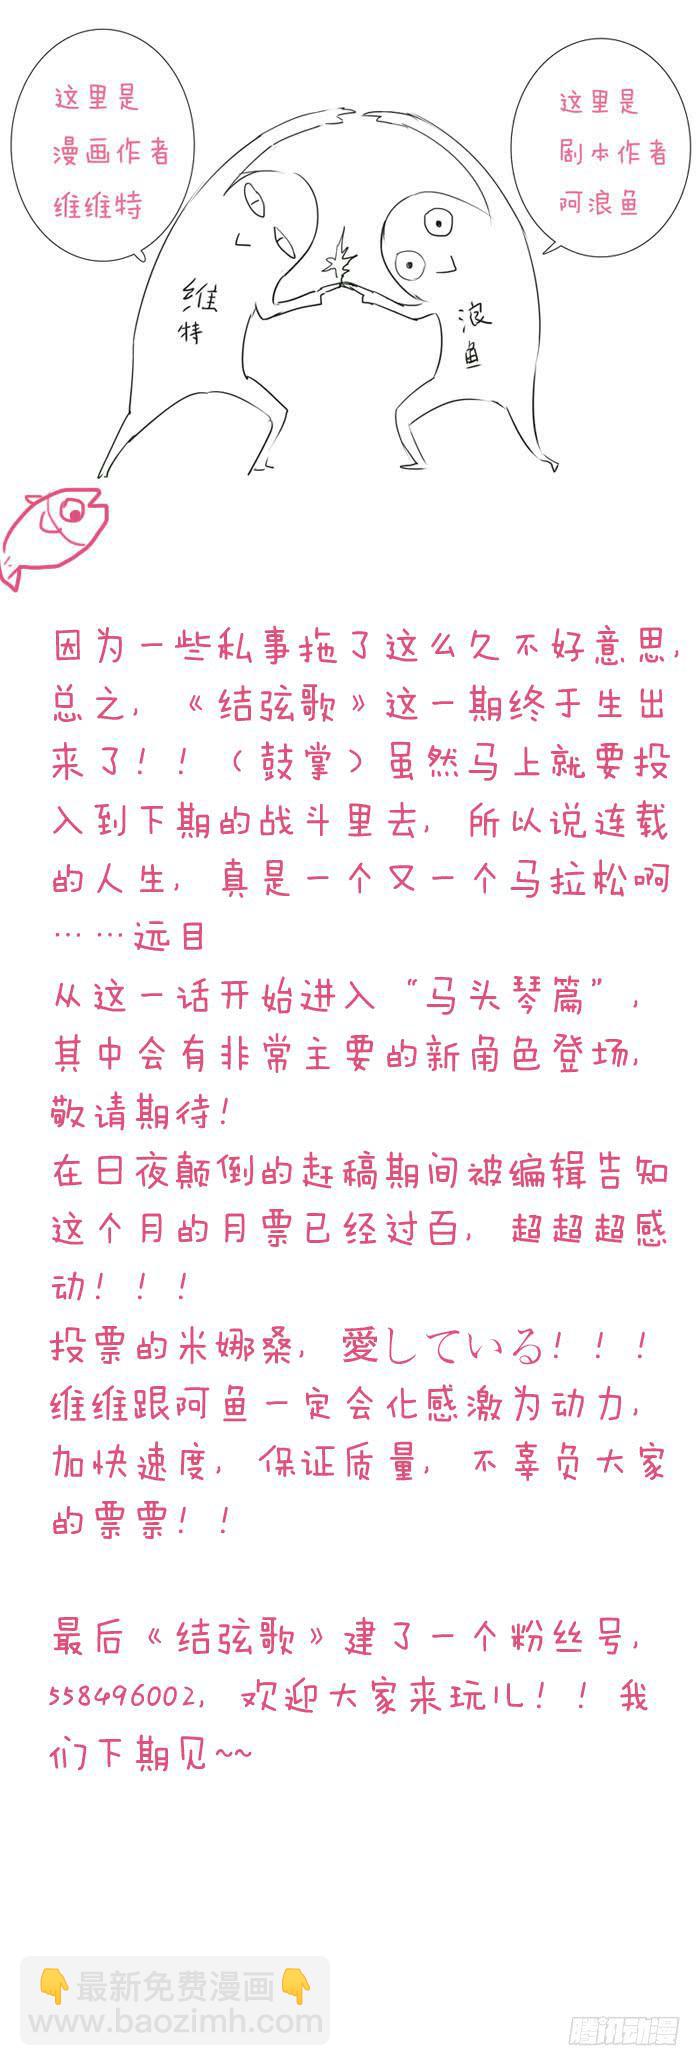 这里是
漫画作者
维维特
这里是
剧本作者
阿浪鱼
维
特
浪
鱼
因为一些私事拖了这么久不好意思，
总之，《结弦歌》这一期终于生出
来了！！（鼓掌）虽然马上就要投
入到下期的战斗里去，所以说连载
的人生，真是一个又一个马拉松啊
……远目
从这一话开始进入“马头琴篇”，
其中会有非常主要的新角色登场，
敬请期待！
在日夜颠倒的赶稿期间被编辑告知
这个月的月票已经过百，超超超感
动！！！
投票的米娜桑，愛している！！！
维维跟阿鱼一定会化感激为动力，
加快速度，保证质量，不辜负大家
的票票！！
最后《结弦歌》建了一个粉丝号，
558496002，欢迎大家来玩儿！！我
们下期见~~
👇最新免费漫画👇
www.baozimh.com
腾讯动漫